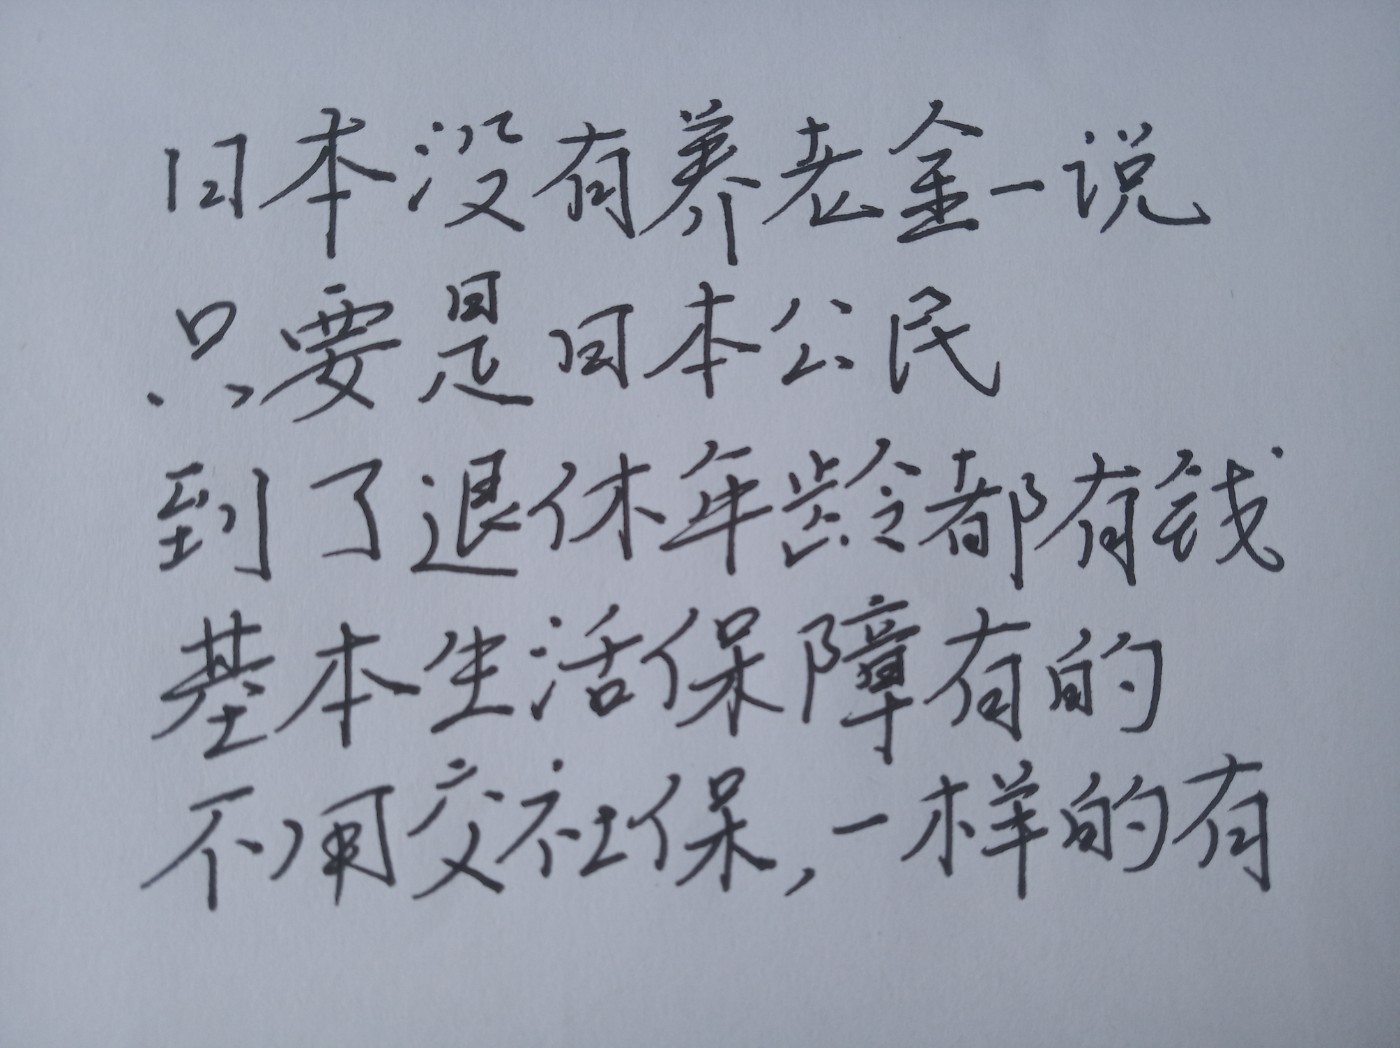 日本没有养老金一说
只要是日本公民
到了退休年龄都有钱
基本生活保障有的
不用交社保,一样的有